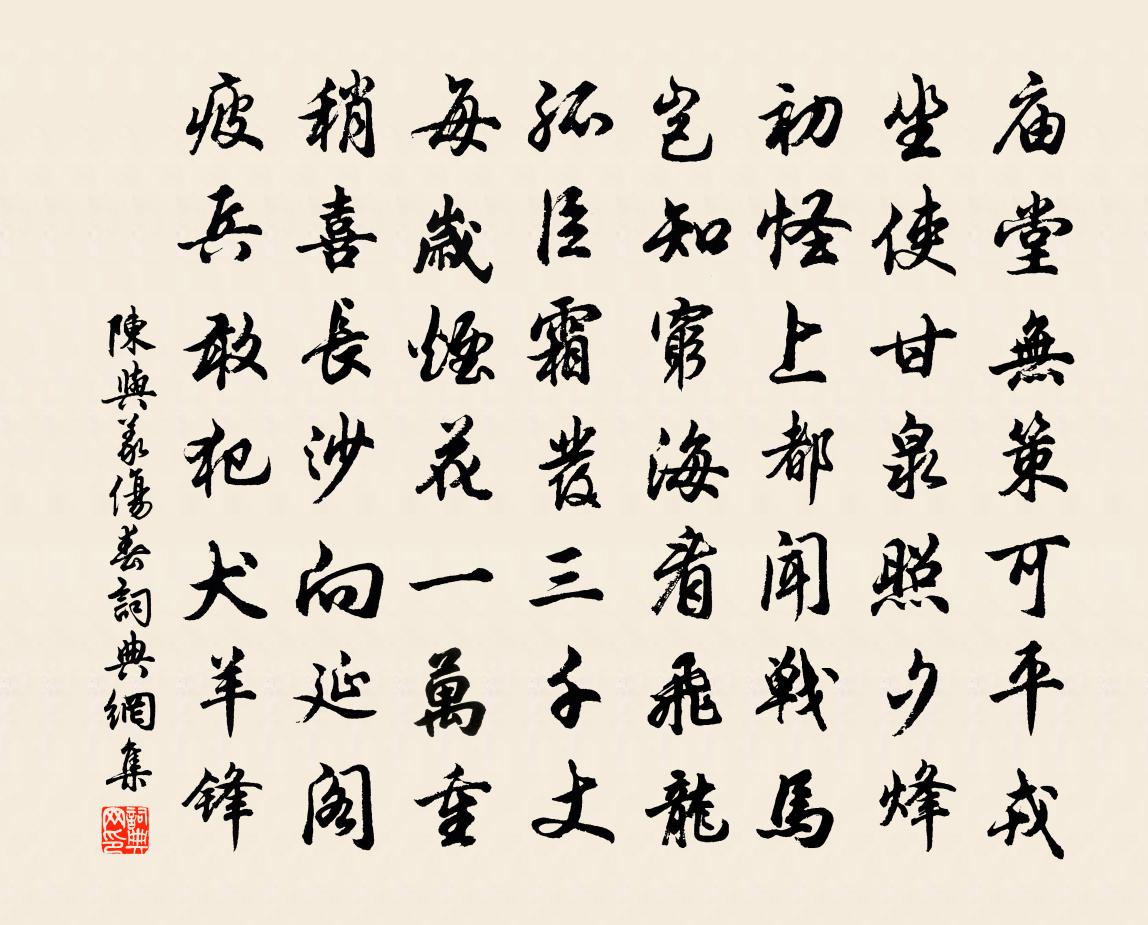 庙堂無策可平戎
坐使甘泉照夕烽
初怪上都聞戰馬
豈知窮海看飛龍
孤臣霜發三千丈
每歲煙花一萬重
稍喜長沙向延閣
疲兵敢犯犬羊锋
陳與義傷春詞典網集
詞典网印